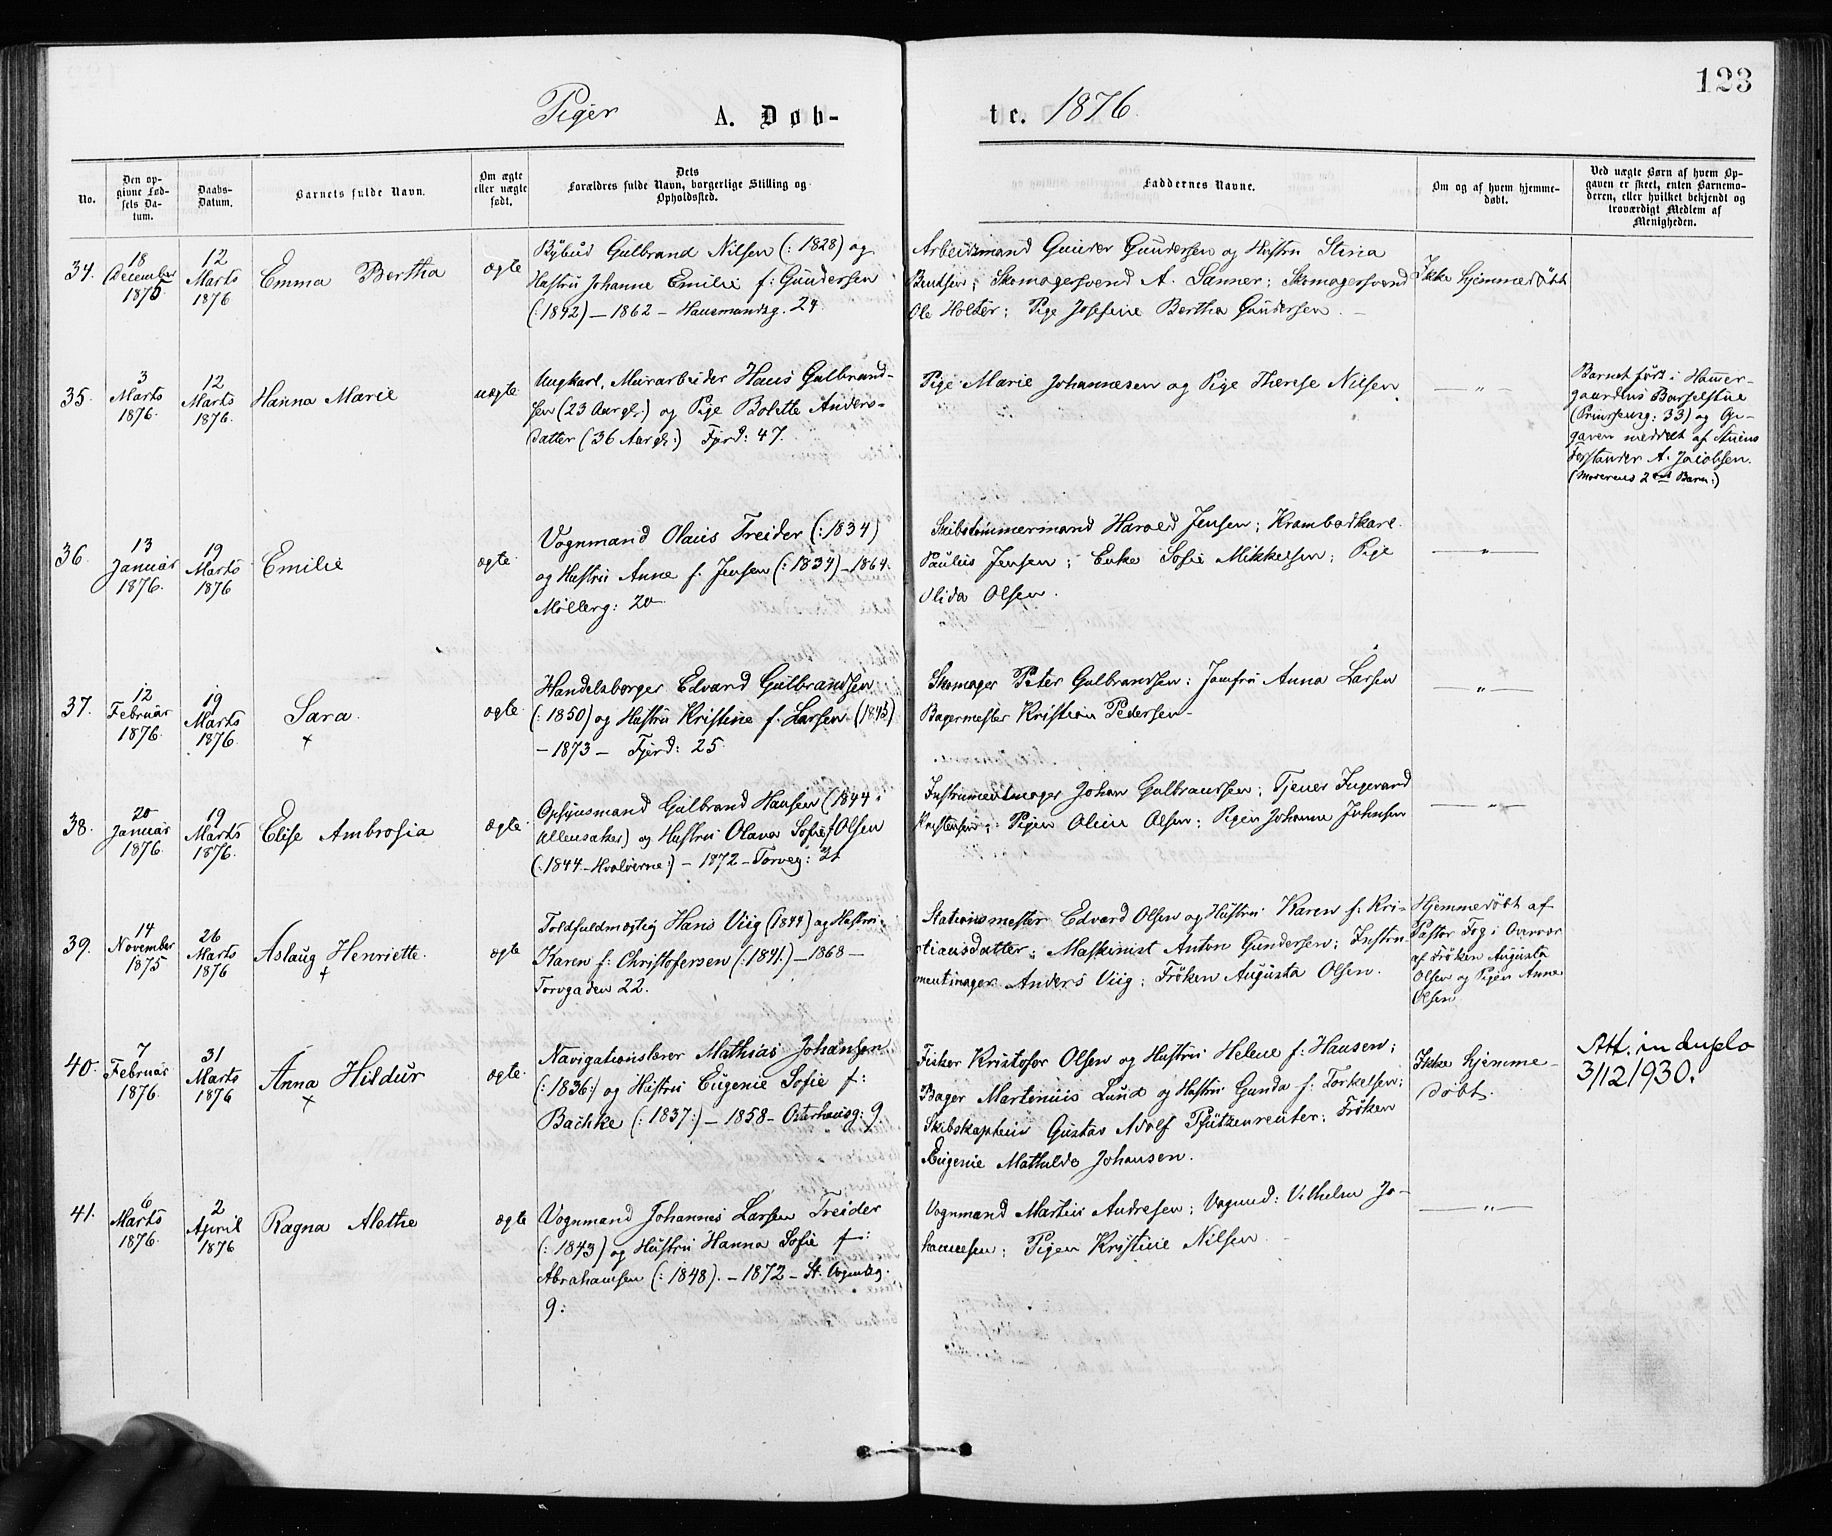 123
Piger A. Døb-te. 1876.
No.
Den op-
givne Fød-
sels Da-
tum.
Daabs-
Datum.
Barnets fulde Navn.
Om ægte
eller uægte
født.
Dets
Forældres fulde Navn, borgerlige Stilling og
Opholdssted.
Faddernes Navne.
Om og af hvem hjemme-
døbt.
Ved uægte Børn af hvem Op-
gaven er skeet, enten Barnemo-
deren, eller hvilket bekjendt og
troværdigt Medlem af
Menigheden.
34.
18
December
1875
12
Marts
1876
Emma Bertha
ægte
Bybud Gulbrand Nilsen (: 1828) og
Hustru Johanne Emilie f: Gundersen
(: 1842) – 1862 – Hausmandsg. 24.
Arbeidsmand Gunder Gundersen og Hustru Stina
Berntsen; Skomagersvend A. Sanner; Skomagersvend
Ole Holter; Pige Josefine Bertha Gundersen. –
Ikke hjemmedøbt
35.
3
Marts
1876.
12
Marts
1876.
Hanna Marie
uægte
Ungkarl, Murarbeider Hans Gulbrand-
sen (23 Aar gl:) og Pige Bolette Anders-
datter (36 Aar gl:) Fjerd: 47.
Pige Marie Johannesen og Pige Therese Nilsen.
— „ —
Barnet født i
gaardens Barselstue
(Prinsensg: 33) og Op-
gaven meddelt af Stuens
Forstander A. Jacobsen.
(Moderens 2det Barn:)
36.
13
Januar
1876.
19
Marts
1876
Emilie
ægte
Vognmand Olaus Treider (: 1834)
og Hustru Anne f. Jensen (: 1834) – 1864.
Møllerg: 20
Skibstømmermand Harald Jensen; Krambodkarl
Paulus Jensen; Enke Sofie Mikkelsen; Pige
Olida Olsen.
— „ —
37.
12
Februar
1876.
19
Marts
1876.
Sara.
+
ægte
Handelsborger Edvard Gulbrandsen
(: 1850) og Hustru Kristine f. Larsen (1845)
– 1873 – Fjerd: 25.
Skomager Peter Gulbrandsen; Jomfru Anna Larsen
Bagermester Kristian Pedersen –
— „ —
38.
20
Januar
1876.
19
Marts
1876.
Elise Ambrosia
ægte
Opsynsmand Gulbrand Hansen (1844 i
Ullensaker) og Hustru Olava Sofie f Olsen
(: 1844 – Hvaløerne:) – 1872 – Torvg: 31
Instrumentmager Johan Gulbranssen; Tjener Ingevard
Kristensen; Pigen Oline Olsen; Pigen Johanne Johnsen
— „ —
39.
14
November
1875
26
Marts
1876
Aslaug Henriette.
+
ægte
Toldfuldmægtig Hans Viig (1844) og Hustru
Karen f: Christofersen (: 1841.) – 1868 –
Torvgaden 22.
Stationsmester Edvard Olsen og Hustru Karen f: Kri-
stiansdatter; Maskinist Anton Gundersen; Instru-
mentmager Anders Viig; Frøken Augusta Olsen.
Hjemmedøbt af
Pastor Fog i Overvær
af Frøken Augusta
Olsen og Pigen Anne
Olsen
40.
7
Februar
1876.
31
Marts
1876
Anna Hildur
+
ægte.
Navigationslærer Mathias Johansen
(: 1836:) og Hustru Eugenie Sofie f:
Bachke (: 1837:) – 1858 – Osterhausg: 9.
Fisker Kristofer Olsen og Hustru Helene f: Hansen;
Bager Martinius Lund og Hustru Gunda f: Torkelsen;
Skibskaptein Gustav Adolf Pfützenreuter; Frøken
Eugenie Mathilde Johansen.
Ikke hjemme-
døbt.
Att. in duplo
3/12 1930.
41.
6
Marts
1876.
2
April
1876
Ragna Alethe
ægte
Vognmand Johannes Larsen Treider
(: 1843) og Hustru Hanna Sofie f:
Abrahamsen (: 1848). – 1872 – St. Vognmdsg.
9:
Vognmand Martin Andresen; Vognmd: Vilhelm Jo-
hannesen; Pigen Kristine Nilsen
— „ —